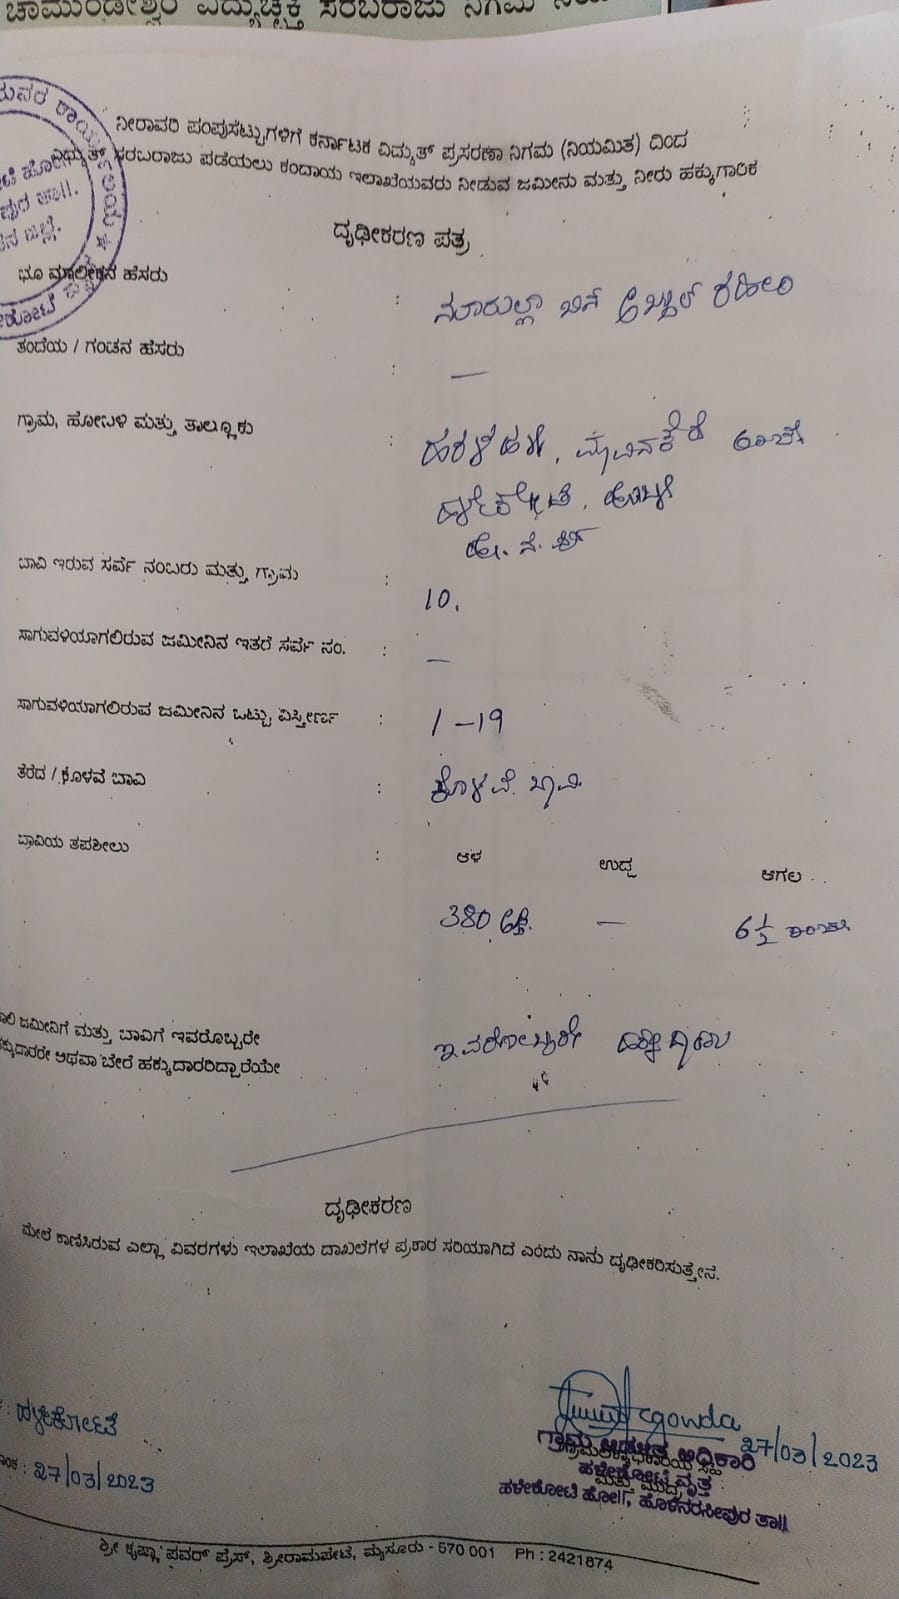 ಚಾಮುಂಡೇಶ್ವರಿ ವಿದ್ಯುಚ್ಛಕ್ತಿ ಸರಬರಾಜು ನಿಗಮ
ನೀರಾವರಿ ಪಂಪುಸೆಟ್ಟುಗಳಿಗೆ ಕರ್ನಾಟಕ ವಿದ್ಯುತ್ ಪ್ರಸರಣಾ ನಿಗಮ (ನಿಯಮಿತ) ದಿಂದ
ವಿದ್ಯುತ್ ಸರಬರಾಜು ಪಡೆಯಲು ಕಂದಾಯ ಇಲಾಖೆಯವರು ನೀಡುವ ಜಮೀನು ಮತ್ತು ನೀರು ಹಕ್ಕುಗಾರಿಕೆ
ದೃಢೀಕರಣ ಪತ್ರ
ಭೂ ಮಾಲೀಕನ ಹೆಸರು : ನೂರುಲ್ಲಾ ಬಿನ್ ಅಬ್ದುಲ್ ರಹೀಂ
ತಂದೆಯ / ಗಂಡನ ಹೆಸರು : —
ಗ್ರಾಮ, ಹೋಬಳಿ ಮತ್ತು ತಾಲ್ಲೂಕು : ಮಾವಿನಕೆರೆ ಅಂಚೆ
ಹಳೇಕೋಟೆ, ಹೋಬಳಿ
ಬಾವಿ ಇರುವ ಸರ್ವೆ ನಂಬರು ಮತ್ತು ಗ್ರಾಮ : 10.
ಸಾಗುವಳಿಯಾಗಲಿರುವ ಜಮೀನಿನ ಇತರೆ ಸರ್ವೆ ನಂ. : —
ಸಾಗುವಳಿಯಾಗಲಿರುವ ಜಮೀನಿನ ಒಟ್ಟು ವಿಸ್ತೀರ್ಣ : 1-19
ತೆರೆದ / ಕೊಳವೆ ಬಾವಿ : ಕೊಳವೆ ಬಾವಿ
ಬಾವಿಯ ತಪಶೀಲು : ಆಳ ಉದ್ದ ಅಗಲ
380 ಅಡಿ. — 6 1/2 ಇಂಚು
ಜಮೀನಿಗೆ ಮತ್ತು ಬಾವಿಗೆ ಇವರೊಬ್ಬರೇ
ಹಕ್ಕುದಾರರೇ ಅಥವಾ ಬೇರೆ ಹಕ್ಕುದಾರರಿದ್ದಾರೆಯೇ ಇವರೊಬ್ಬರೇ
ದೃಢೀಕರಣ
ಮೇಲೆ ಕಾಣಿಸಿರುವ ಎಲ್ಲಾ ವಿವರಗಳು ಇಲಾಖೆಯ ದಾಖಲೆಗಳ ಪ್ರಕಾರ ಸರಿಯಾಗಿದೆ ಎಂದು ನಾನು ದೃಢೀಕರಿಸುತ್ತೇನೆ.
ಹಳೇಕೋಟೆ
27/03/2023
27/03/2023
ಗ್ರಾಮ ಆಡಳಿತ ಅಧಿಕಾರಿ
ಹಳೇಕೋಟೆ ವೃತ್ತ
ಹಳೇಕೋಟೆ ಹೋ||, ಹೊಳೆನರಸೀಪುರ ತಾ||
ಶ್ರೀ ಕೃಷ್ಣಾ ಪವರ್ ಪ್ರೆಸ್, ಶ್ರೀರಾಮಪೇಟೆ, ಮೈಸೂರು - 570 001 Ph : 2421874